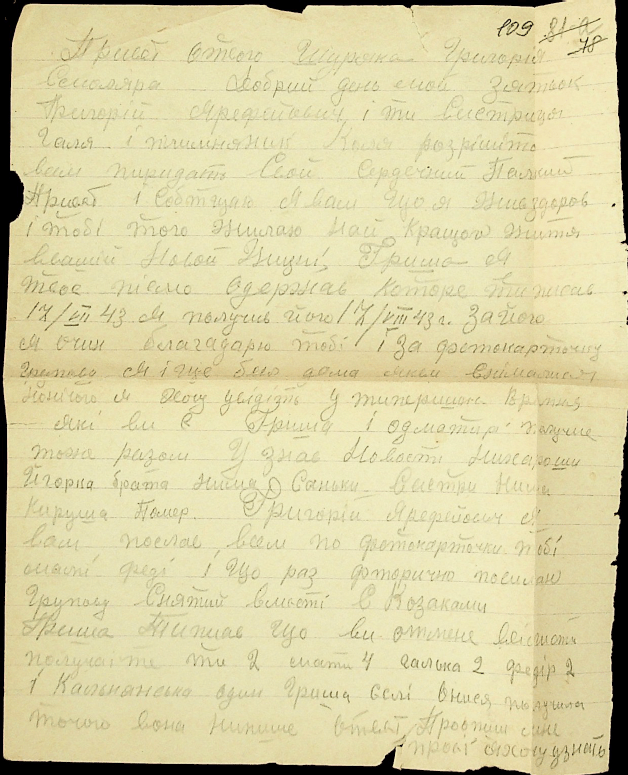 109 81-a
78
Привіт отвого Шуряка Григорія
Школяра Добрий день мой зятьок
Григорій Ярефейович і ти Систриця
Галя і племняник Коля розрішіть
вам перидать Свой Сердечний Палкий
Привіт і Собтщаю Я вам що я жив здоров
і тобі того жилаю Най кращого життя
вВашій Новой Жизні, Гриша Я
твоє пісмо одержав которе ти писав
17/VII 43 Я получив його 17/VIII 43 г. За його
Я очин благадарю тобі і за фотокарточку
групову Я іще був дома
Я хочу увідіть у типеришном время
які ви є Гриша і одматирі получив
тоже разом Узнав Новости Нихароши
Йгорка брата нима Саньки Систри Нима
Кируша Помер. Григорій Ярефейович Я
вам послав всем по фотокарточки тобі
мати феді і що раз фторично посилаю
Групову Снятий вмвсті с Козаками
Гриша Типисав що ви отмене
получаіте ти 2 мати 4 галька 2 федір 2
і один Гриша єслі Онися получила
точого вона нипише отвєт Пропиши мне
про хочу узнать